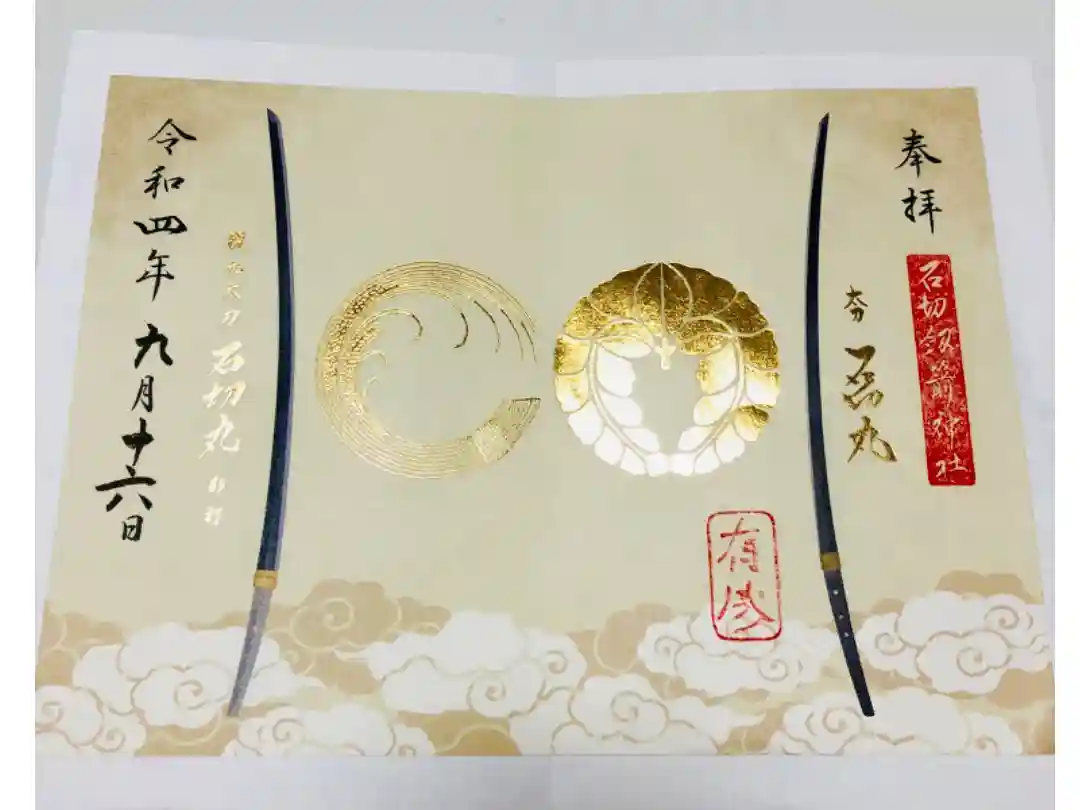 奉拝
石切劔箭神社
石切丸
有成
石切丸
令和四年 九月十六日